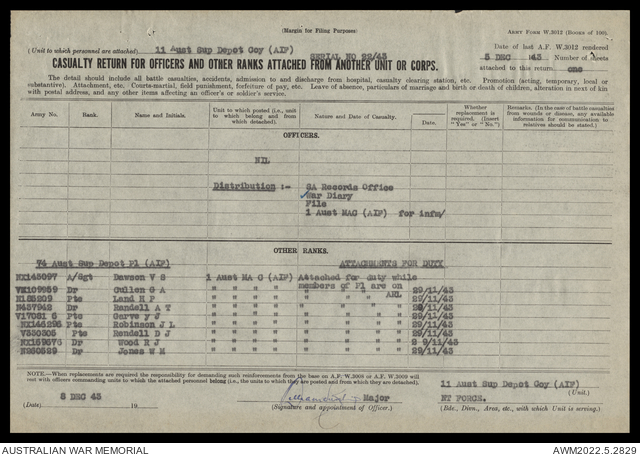 (Margin for Filing Purposes)
ARMY FORM W.3012 (BOOKS OF 100).
(Unit to which personnel are attached) 11 Aust Sup Depot Coy (AIF)
SERIAL NO 22/43
Date of last A.F. W.3012 rendered
5 DEC 43 Number of sheets
CASUALTY RETURN FOR OFFICERS AND OTHER RANKS ATTACHED FROM ANOTHER UNIT OR CORPS.
attached to this return one
The detail should include all battle casualties, accidents, admission to and discharge from hospital, casualty clearing station, etc. Promotion (acting, temporary, local or
substantive). Attachment, etc. Courts-martial, field punishment, forfeiture of pay, etc. Leave of absence, particulars of marriage and birth or death of children, alteration in next of kin
with postal address, and any other items affecting an officer's or soldier's service.
Army No. Rank. Name and Initials. Unit to which posted (i.e., unit to which belong and from which detached). Nature and Date of Casualty. Date. Whether replacement is required. (Insert "Yes" or "No.") Remarks. (In the case of battle casualties from wounds or disease, any available information for communication to relatives should be stated.)
OFFICERS.
NIL
Distribution :- SA Records Office
War Diary
File
1 Aust MAC (AIF) for infm/
OTHER RANKS.
74 Aust Sup Depot Pl (AIF) ATTACHMENTS FOR DUTY
NX145097 A/Sgt Dawson V S 1 Aust MA C (AIF) Attached for duty while
members of Pl are on
VX109959 Dr Cullen G A " " " " " " 29/11/43
N185209 Pte Land H P " " " " " " ARL 29/11/43
N457942 Dr Randell A T " " " " " " 29/11/43
Garvey J " " " " " " 29/11/43
NX146296 Pte Robinson J L " " " " " " 29/11/43
V350305 Pte Rendell D J " " " " " " 29/11/43
Dr Wood R J " " " " " " 2 9/11/43
N260529 Dr Jones W M " " " " " " 29/11/43
NOTE.—When replacements are required the responsibility for demanding such reinforcements from the base on A.F. W.3008 or A.F. W.3009 will
rest with officers commanding units to which the attached personnel belong (i.e., the units to which they are posted and from which they are detached).
11 Aust Sup Depot Coy (AIF)
(Unit.)
8 DEC 43
(Date) 19
Major
(Signature and appointment of Officer.)
NT FORCE.
(Bde., Divn., Area, etc., with which Unit is serving.)
AUSTRALIAN WAR MEMORIAL
AWM2022.5.2829